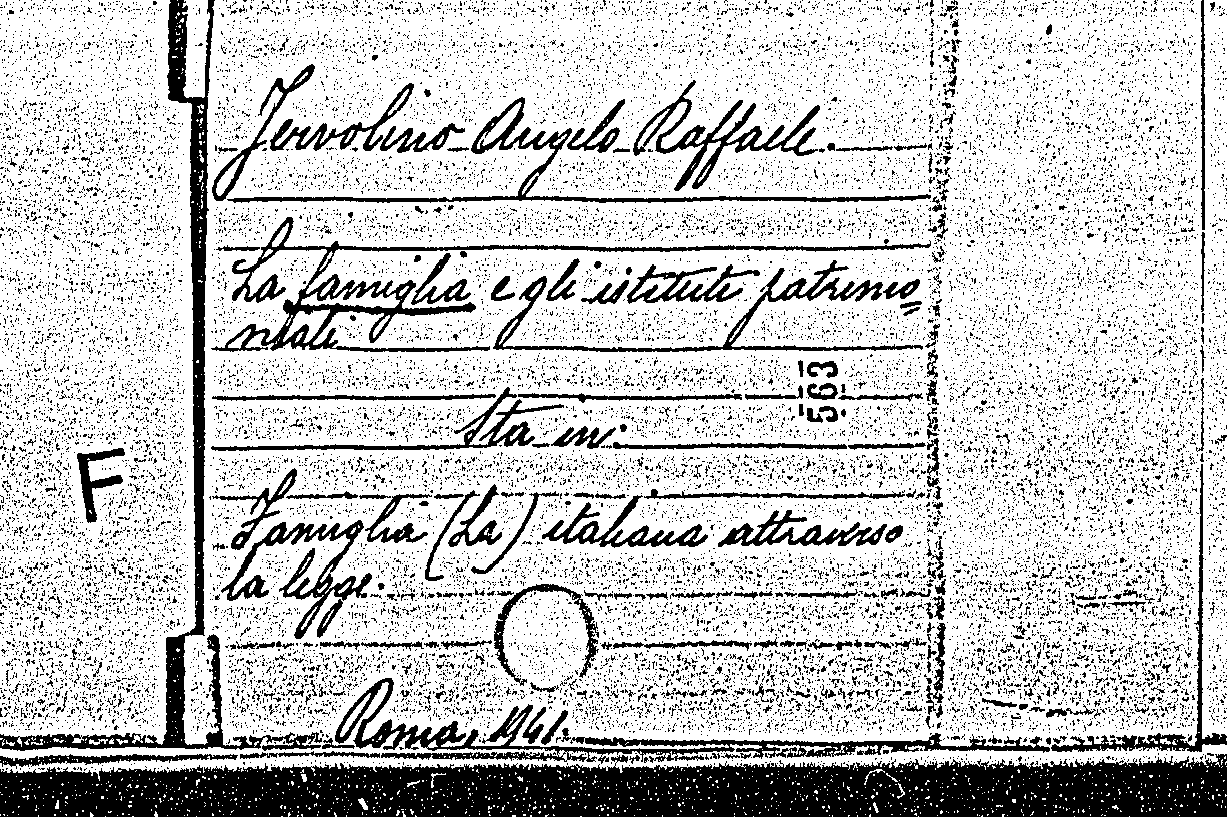 Jervolino Angelo Raffaele.
La famiglia e gli istituti patrimo=
niali
563
Sta in:
F
Famiglia (La) italiana attraverso
la legge.
Roma, 1941.